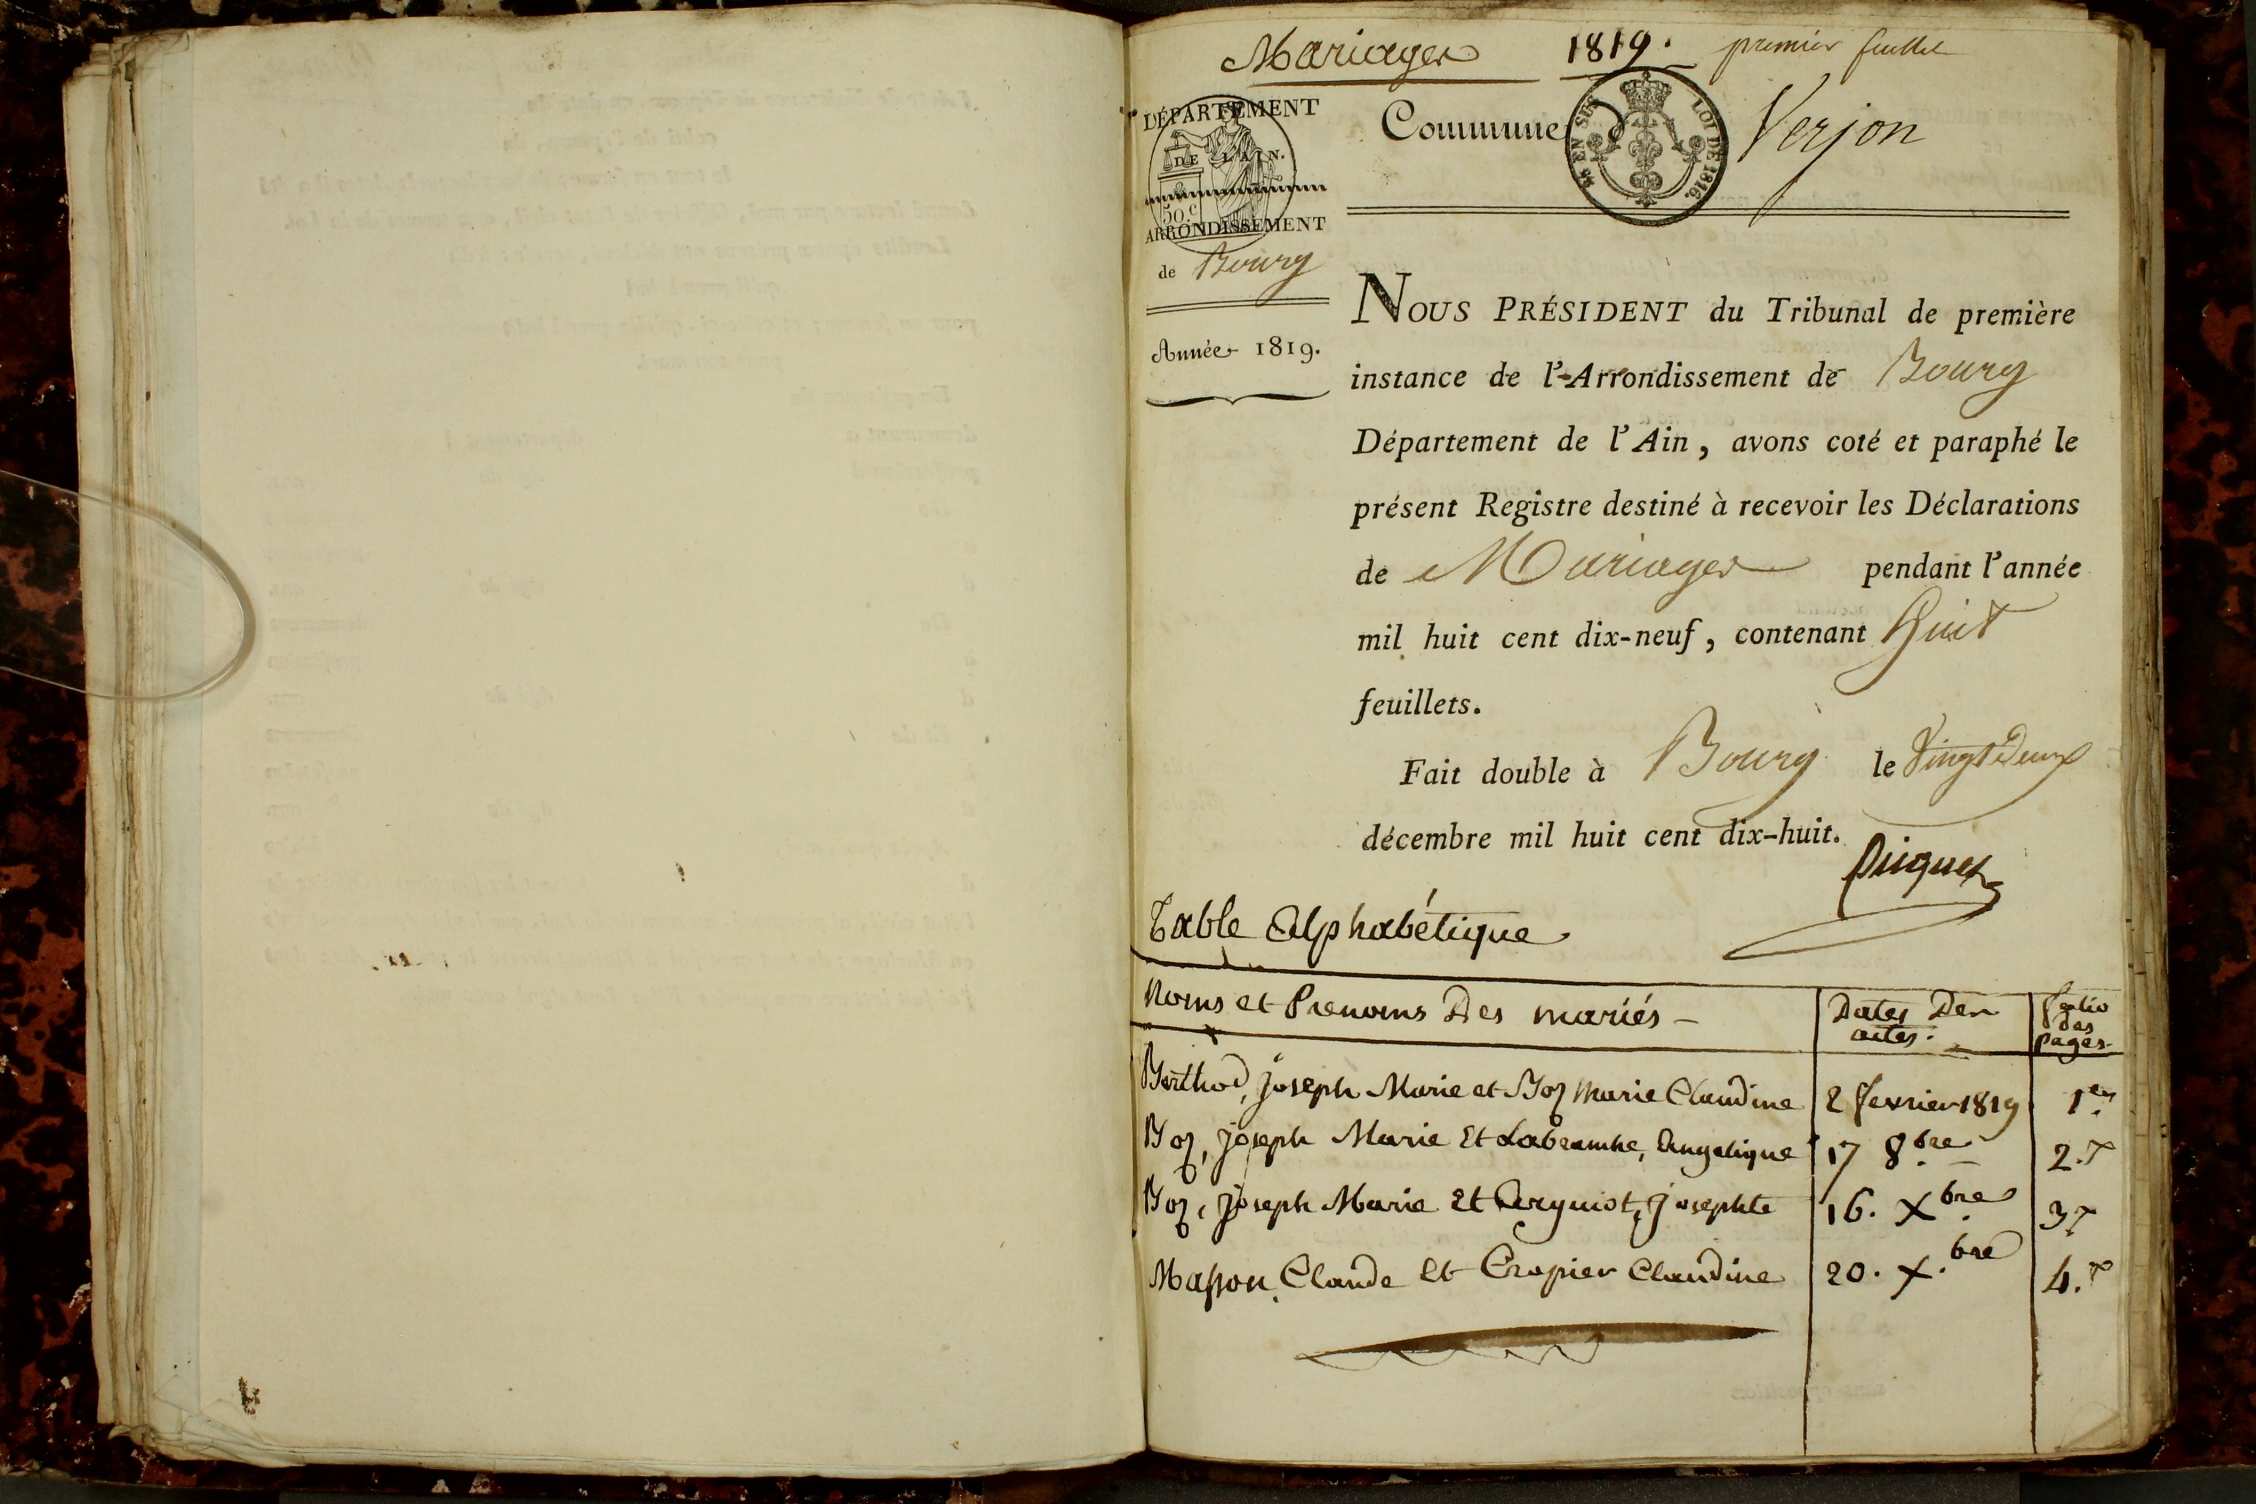 Mariages 1819. premier feuillet
DÉPARTEMENT
DE L'AIN.
50.c
ARRONDISSEMENT
de Bourg
Année 1819.
Commune d Verjon
EN SUS LOI DE 1816.
NOUS PRÉSIDENT du Tribunal de première
instance de l'Arrondissement de Bourg
Département de l'Ain, avons coté et paraphé le
présent Registre destiné à recevoir les Déclarations
de Mariages pendant l'année
mil huit cent dix-neuf, contenant huit
feuillets.
Fait double à Bourg le Vingt Deux
décembre mil huit cent dix-huit.
Table Alphabétique
Noms et Prenoms Des mariés - Dates Des actes. folio des pages.
Berthod, Joseph Marie et Boz Marie Claudine 2 fevrier 1819 1er
Boz, Joseph Marie Et Angelique 17 8bre 2.e
Boz, Joseph Marie Et Josephte 16. Xbre 3e
Masson, Claude Et Cropier Claudine 20. X.bre 4.e